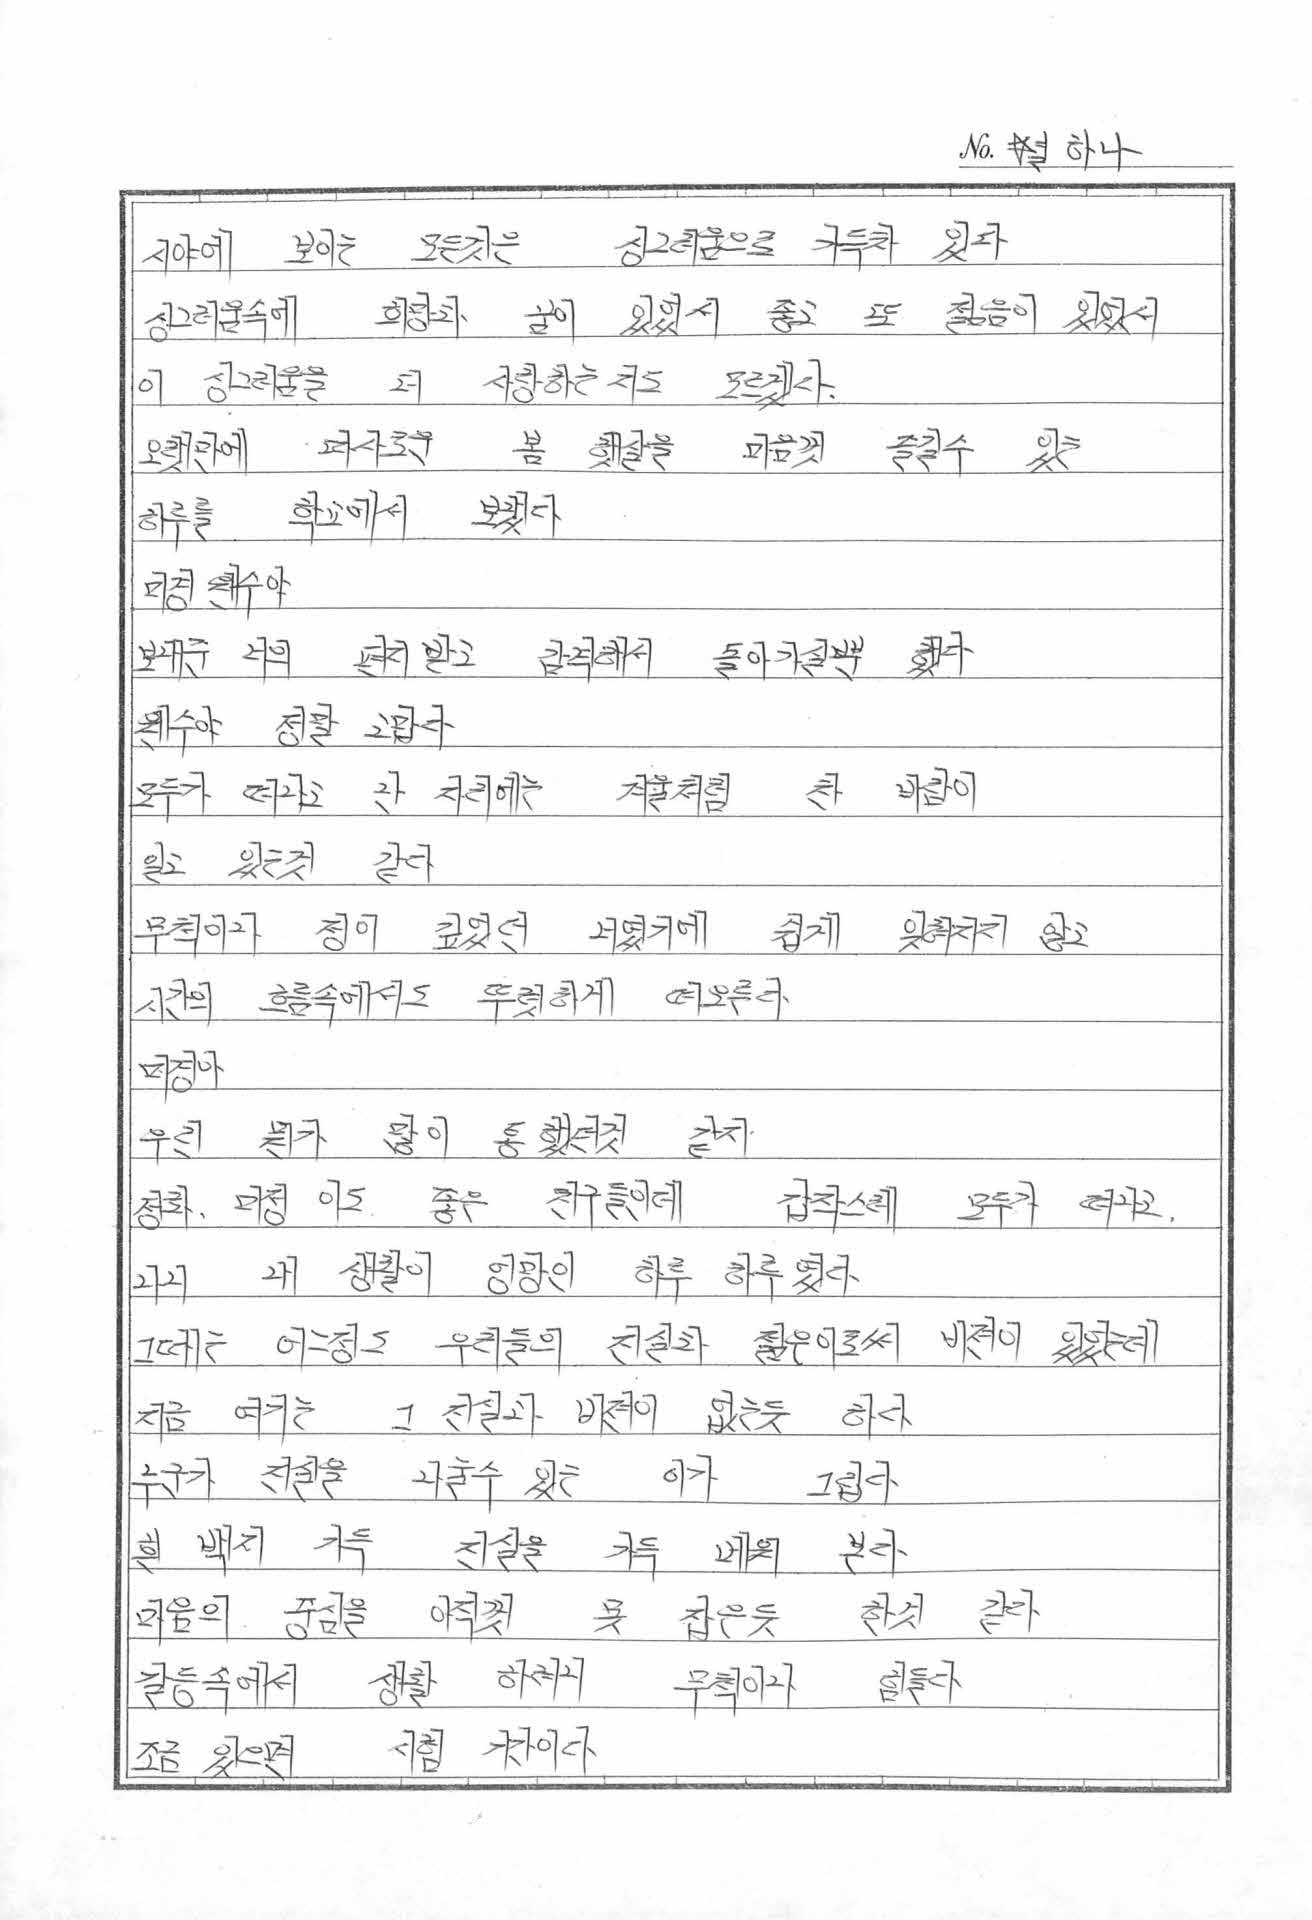 No. 하나
시야에 보이는 모든것은 싱그러움으로 가득차 있다
싱그러움속에 희망과 꿈이 있었서 좋고 또 젊음이 있었서
이 싱그러움을 더 사랑하는지도 모르겠다.
오랫만에 따사로운 봄 햇살을 마음껏 즐길수 있는
하루를 학교에서 보냈다
미정 웬수야
보내준 너의 편지 받고 감격해서 돌아가실뻔 했다
웬수야 정말 고맙다
모두가 떠나고 간 자리에는 겨울처럼 찬 바람이
일고 있는것 같다
무척이나 정이 깊었던 너였기에 쉽게 잊혀지지 않고
시간의 흐름속에서도 뚜렷하게 떠오른다.
미정아
우린 뭔가 많이 통했던것 같지
정화, 미정 이도 좋은 친구들인데 갑작스레 모두가 떠나고,
나니 내 생활이 엉망인 하루 하루였다.
그때는 어느정도 우리들의 진실과 젊은이로써 비젼이 있었는데
지금 여기는 그 진실과 비젼이 없는듯 하다
누군가 진실을 나눌수 있는 이가 그립다
흰 백지 가득 진실을 가득 메워 본다.
마음의 중심을 아직껏 못 잡은듯 한것 같다
갈등속에서 생활 하려니 무척이나 힘들다
조금 있으면 시험 기간이다